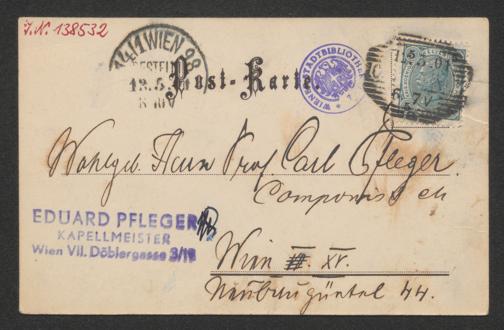 J.N. 138532
14/1 WIEN 98
BESTELLT
13.5
Post-Karte.
WIENER STADTBIBLIOTHEK
Wohlgeb. Herrn Prof. Carl Pfleger
Componist etc
EDUARD PFLEGER
KAPELLMEISTER
Wien VII. Döblergasse
Wien XV.
Neubaugürtel 44.